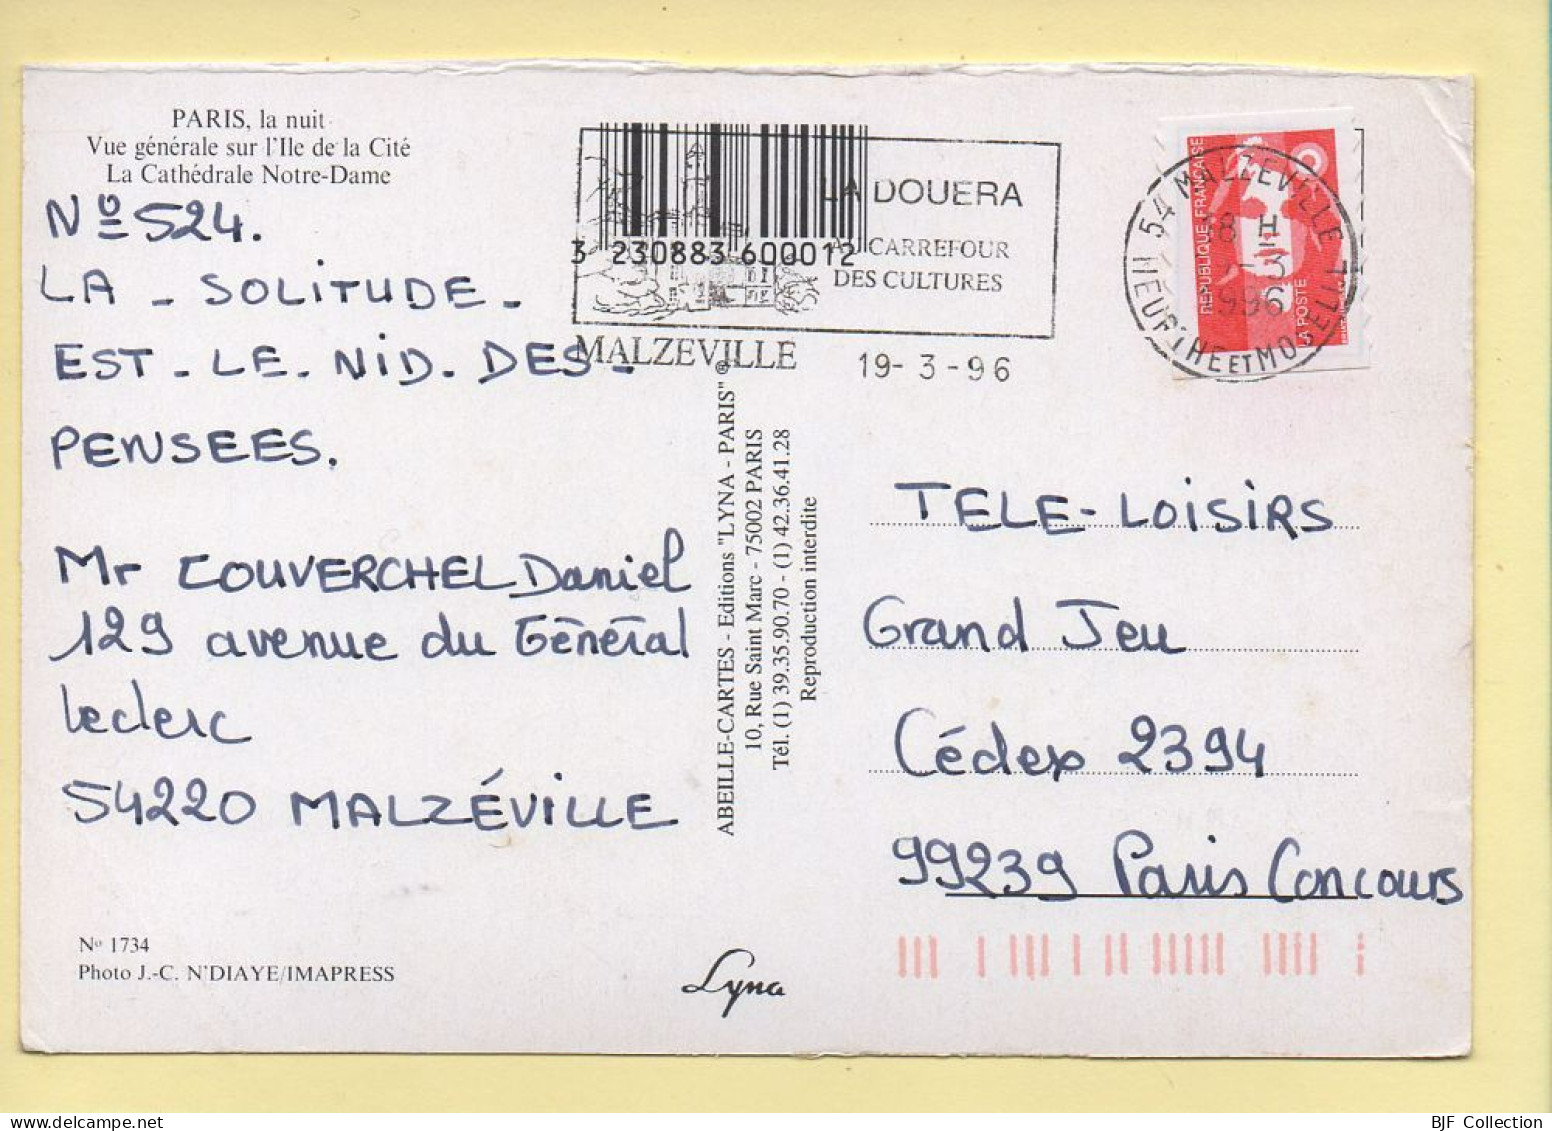 PARIS, la nuit
Vue générale sur l'Ile de la Cité
La Cathédrale Notre-Dame
Nº 524.
LA - SOLITUDE -
EST - LE - NID - DES -
PENSEES.
Mr COUVERCHEL Daniel
129 avenue du Général
Leclerc
54220 MALZÉVILLE
Nº 1734
Photo J.-C. N'DIAYE/IMAPRESS
3 230883 600012
LA DOUERA
AU CARREFOUR
DES CULTURES
MALZEVILLE
19-3-96
54 MALZEVILLE
18 H
-3
996
MEURTHE ET MOSELLE
REPUBLIQUE FRANÇAISE
LA POSTE
ABEILLE-CARTES - Editions "LYNA - PARIS" ®
10, Rue Saint Marc - 75002 PARIS
Tél. (1) 39.35.90.70 - (1) 42.36.41.28
Reproduction interdite
Lyna
TELE-LOISIRS
Grand Jeu
Cédex 2394
99239 Paris Concours
BJF Collection